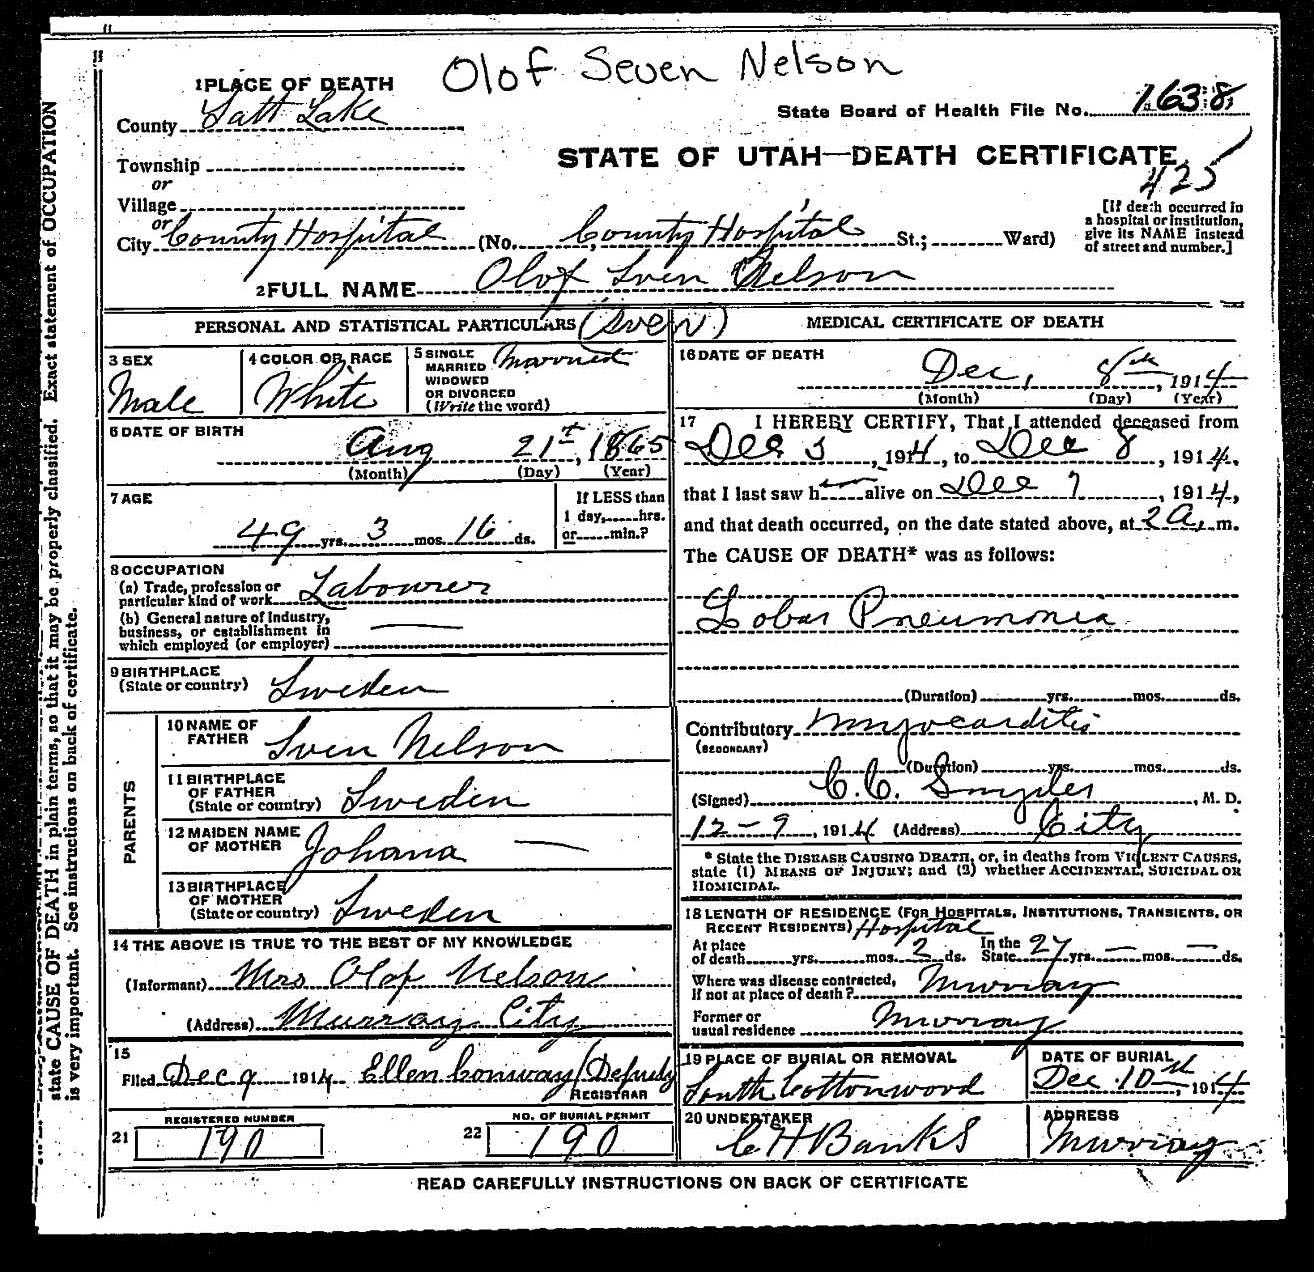 Olof Seven Nelson
1 PLACE OF DEATH
State Board of Health File No. 1638
County Salt Lake
STATE OF UTAH—DEATH CERTIFICATE
425
Township
or
Village
or
City County Hospital (No. County Hospital St.; Ward)
[If death occurred in
a hospital or institution,
give its NAME instead
of street and number.]
2 FULL NAME Olof Sven Nelson
(Sven)
PERSONAL AND STATISTICAL PARTICULARS
3 SEX
Male
4 COLOR OR RACE
White
5 SINGLE
MARRIED
WIDOWED
OR DIVORCED
(Write the word)
Married
6 DATE OF BIRTH
Aug 21st, 1865
(Month) (Day) (Year)
7 AGE
49 yrs. 3 mos. 16 ds.
If LESS than
1 day, hrs.
or min.?
8 OCCUPATION
(a) Trade, profession or
particular kind of work Labourer
(b) General nature of industry,
business, or establishment in
which employed (or employer)
9 BIRTHPLACE
(State or country) Sweden
PARENTS
10 NAME OF
FATHER Sven Nelson
11 BIRTHPLACE
OF FATHER
(State or country) Sweden
12 MAIDEN NAME
OF MOTHER Johana —
13 BIRTHPLACE
OF MOTHER
(State or country) Sweden
14 THE ABOVE IS TRUE TO THE BEST OF MY KNOWLEDGE
(Informant) Mrs Olof Nelson
(Address) Murray City
15
Filed Dec 9 1914 Ellen Conway / Deputy
REGISTRAR
REGISTERED NUMBER
21 190
NO. OF BURIAL PERMIT
22 190
MEDICAL CERTIFICATE OF DEATH
16 DATE OF DEATH
Dec, 8th, 1914
(Month) (Day) (Year)
17 I HEREBY CERTIFY, That I attended deceased from
Dec 5, 1914, to Dec 8, 1914,
that I last saw him alive on Dec 7, 1914,
and that death occurred, on the date stated above, at 2 A. m.
The CAUSE OF DEATH* was as follows:
Lobar Pneumonia
(Duration) yrs. mos. ds.
Contributory Myocarditis
(SECONDARY)
(Duration) yrs. mos. ds.
(Signed) C.C. Snyder, M. D.
12-9, 1914 (Address) City
* State the DISEASE CAUSING DEATH, or, in deaths from VIOLENT CAUSES,
state (1) MEANS OF INJURY; and (2) whether ACCIDENTAL, SUICIDAL OR
HOMICIDAL.
18 LENGTH OF RESIDENCE (FOR HOSPITALS, INSTITUTIONS, TRANSIENTS, OR
RECENT RESIDENTS) Hospital
At place
of death yrs. mos. 2 ds. In the
State 27 yrs. — mos. — ds.
Where was disease contracted,
If not at place of death? Murray
Former or
usual residence Murray
19 PLACE OF BURIAL OR REMOVAL
South Cottonwood
DATE OF BURIAL
Dec. 10th, 1914
20 UNDERTAKER
C H Banks
ADDRESS
Murray
READ CAREFULLY INSTRUCTIONS ON BACK OF CERTIFICATE
state CAUSE OF DEATH in plain terms, so that it may be properly classified. Exact statement of OCCUPATION
is very important. See instructions on back of certificate.